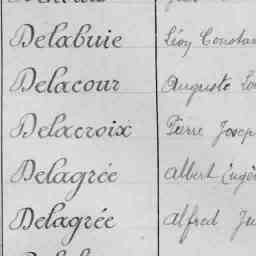 Delabuie Léon Constan
Delacour Auguste
Delacroix Pierre Josep
Delagrée Albert Eugèn
Delagrée Alfred Ju